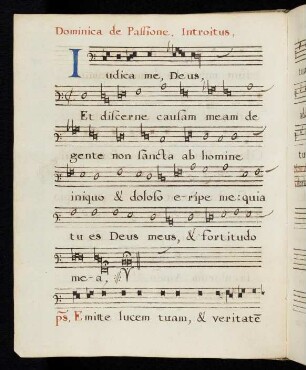 Dominica de Paſſione, Introitus,
Iudica me, Deus,
Et diſcerne cauſam meam de
gente non ſancta ab homine
iniquo & doloſo e-ripe me: quia
tu es Deus meus, & fortitudo
me-a,
ps, Emitte lucem tuam, & veritatē